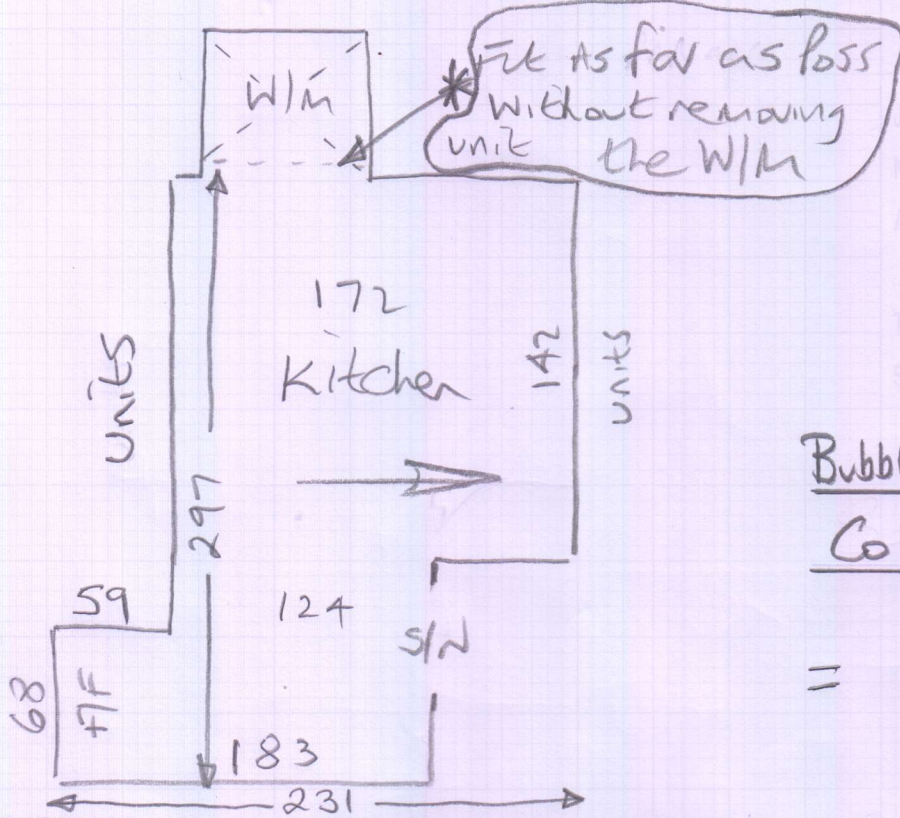 W/M
* Fit As far as Poss
without removing
unit the W/M
172
Kitchen
units
142
units
297
Bubbl
Co
59
124
S/N
68
F/F
=
183
231